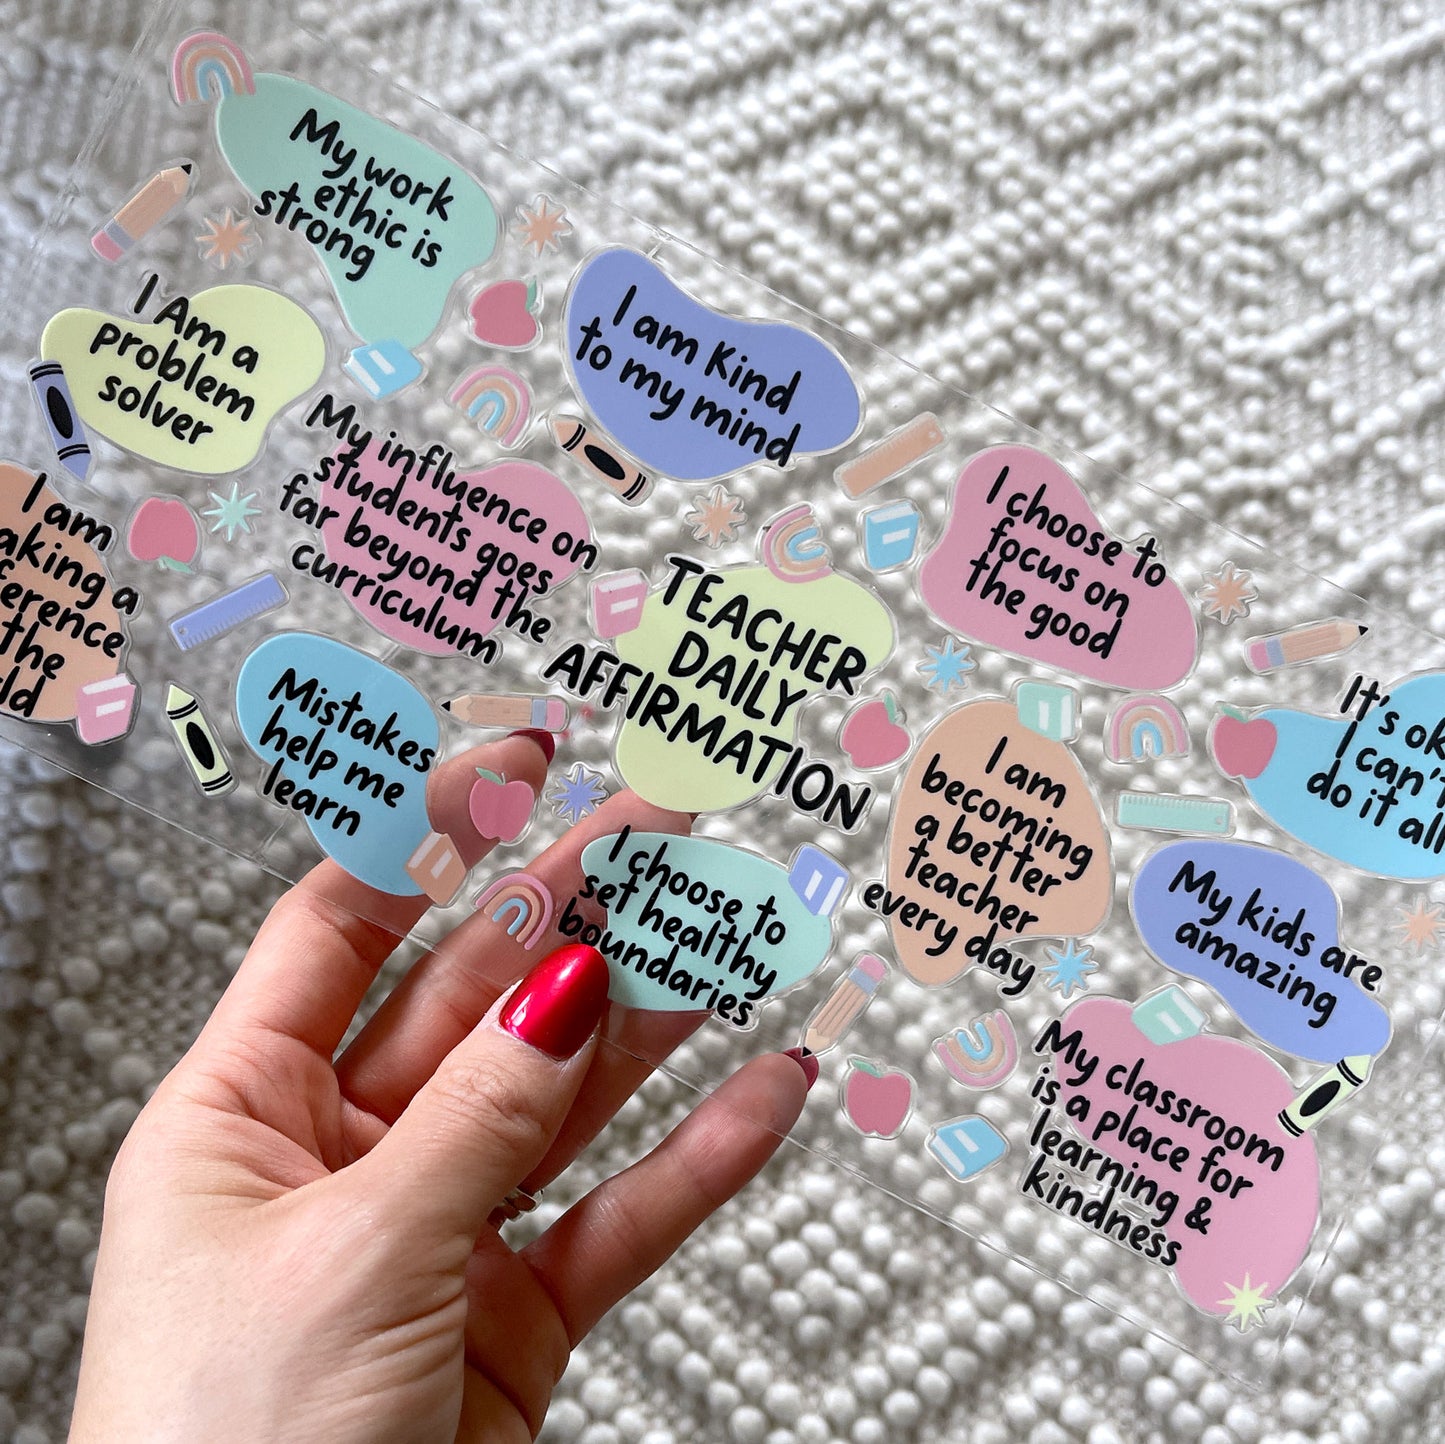 My work
ethic is
strong
I Am a
problem
solver
I am Kind
to my mind
My influence on
students goes
far beyond the
curriculum
I choose to
focus on
the good
I am
a
the
TEACHER
DAILY
AFFIRMATION
Mistakes
help me
learn
I am
becoming
a better
teacher
every day
It's ok
I can't
do it all
I choose to
set healthy
boundaries
My kids are
amazing
My classroom
is a place for
learning &
kindness